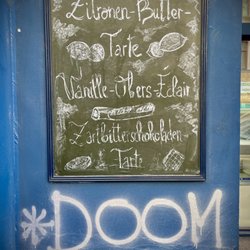 Zitronen-Butter-
Tarte
Vanille-Obers-Éclair
Zartbitterschokoladen-
Tarte
*DOOM